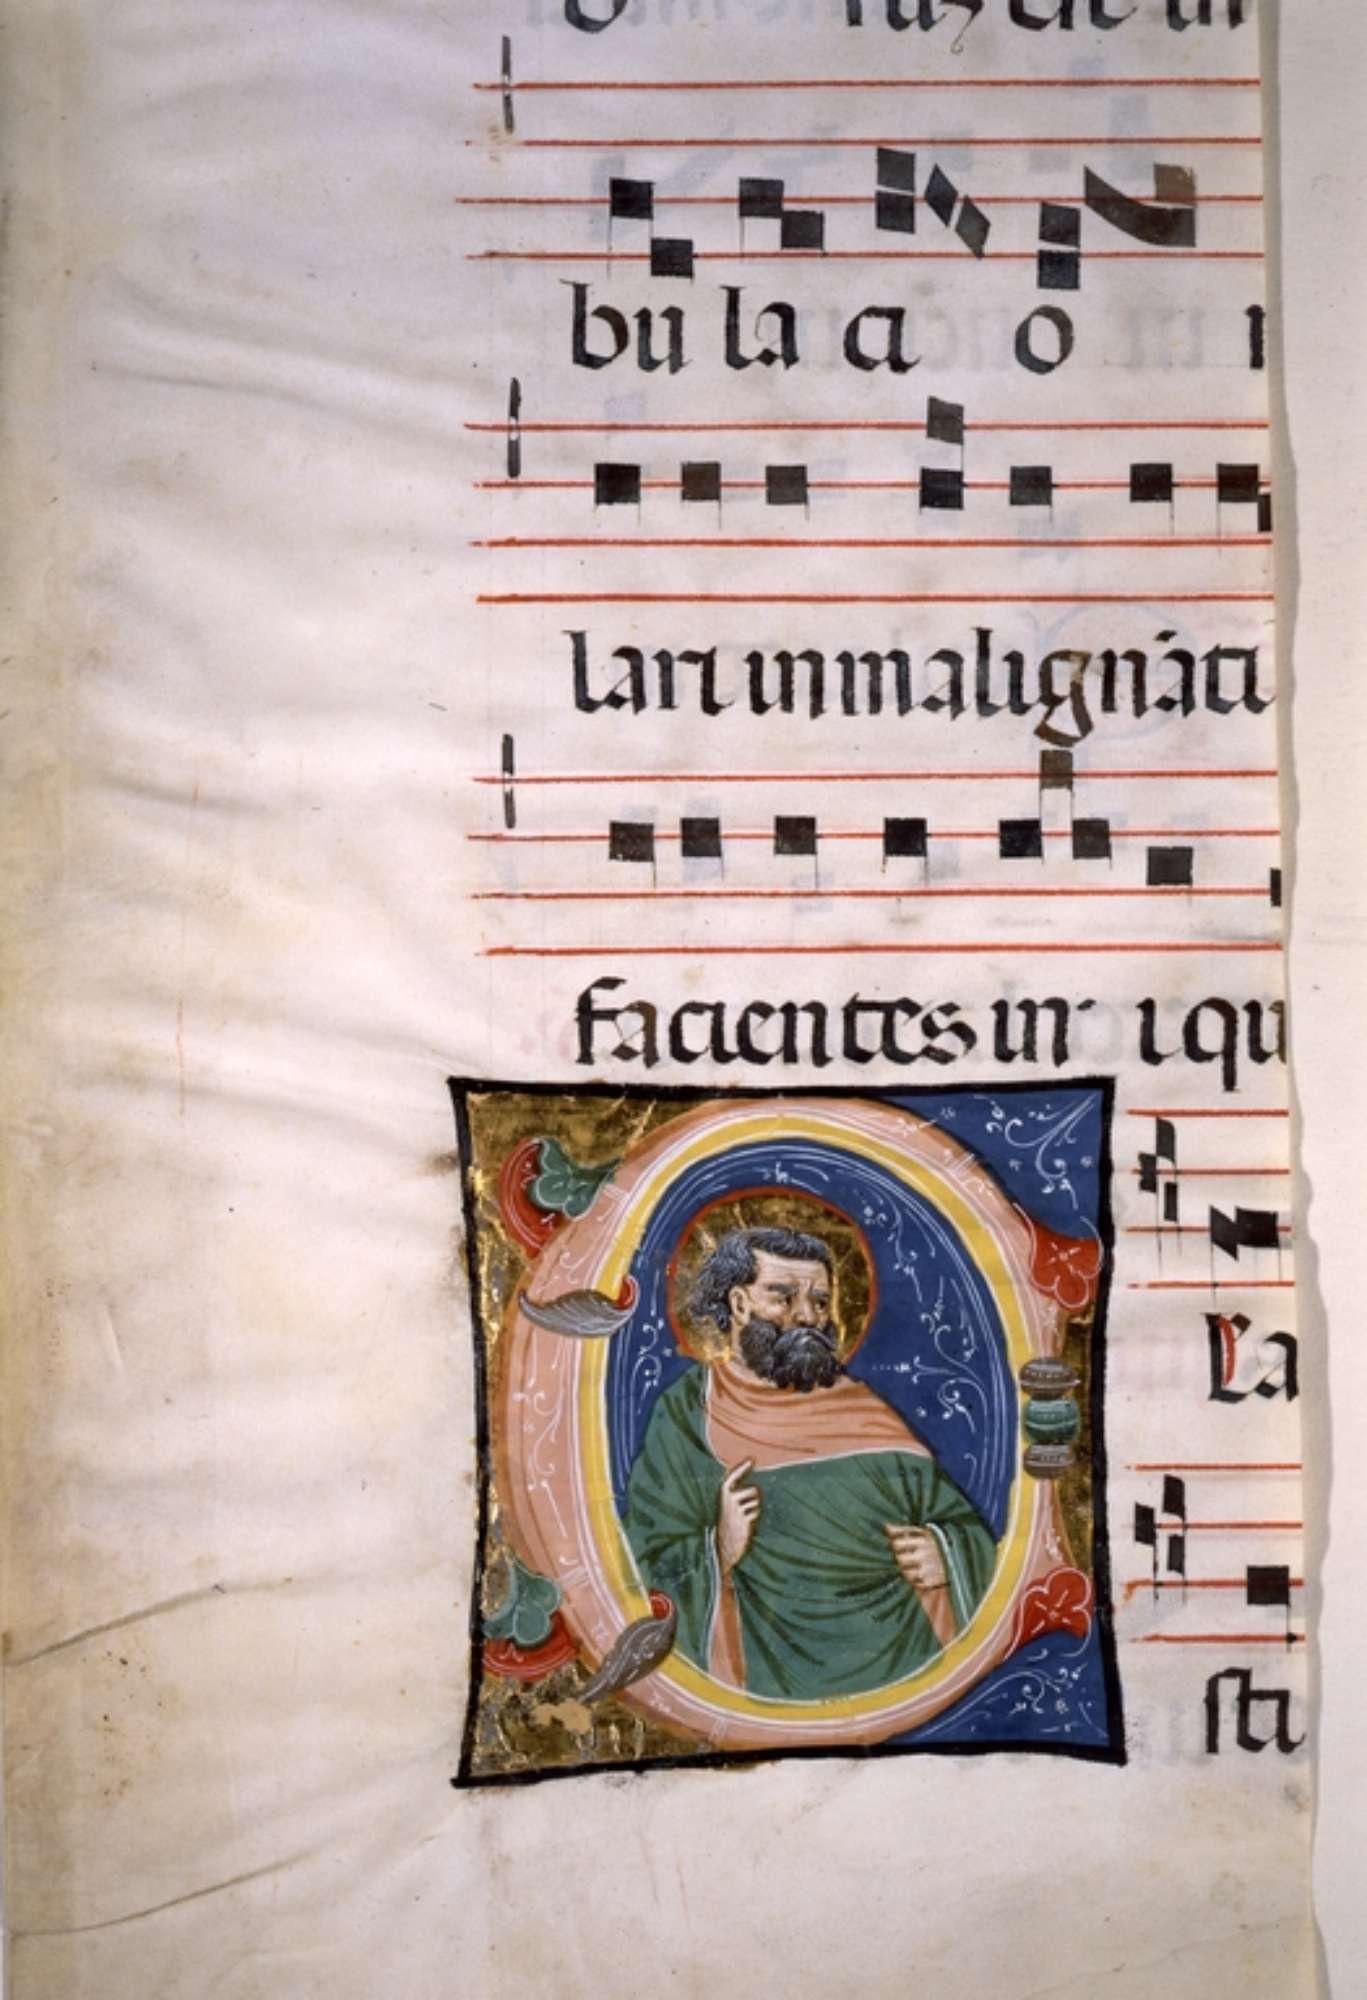 bu la ci o
lari in malignāti
facientes in iqu
La
sti